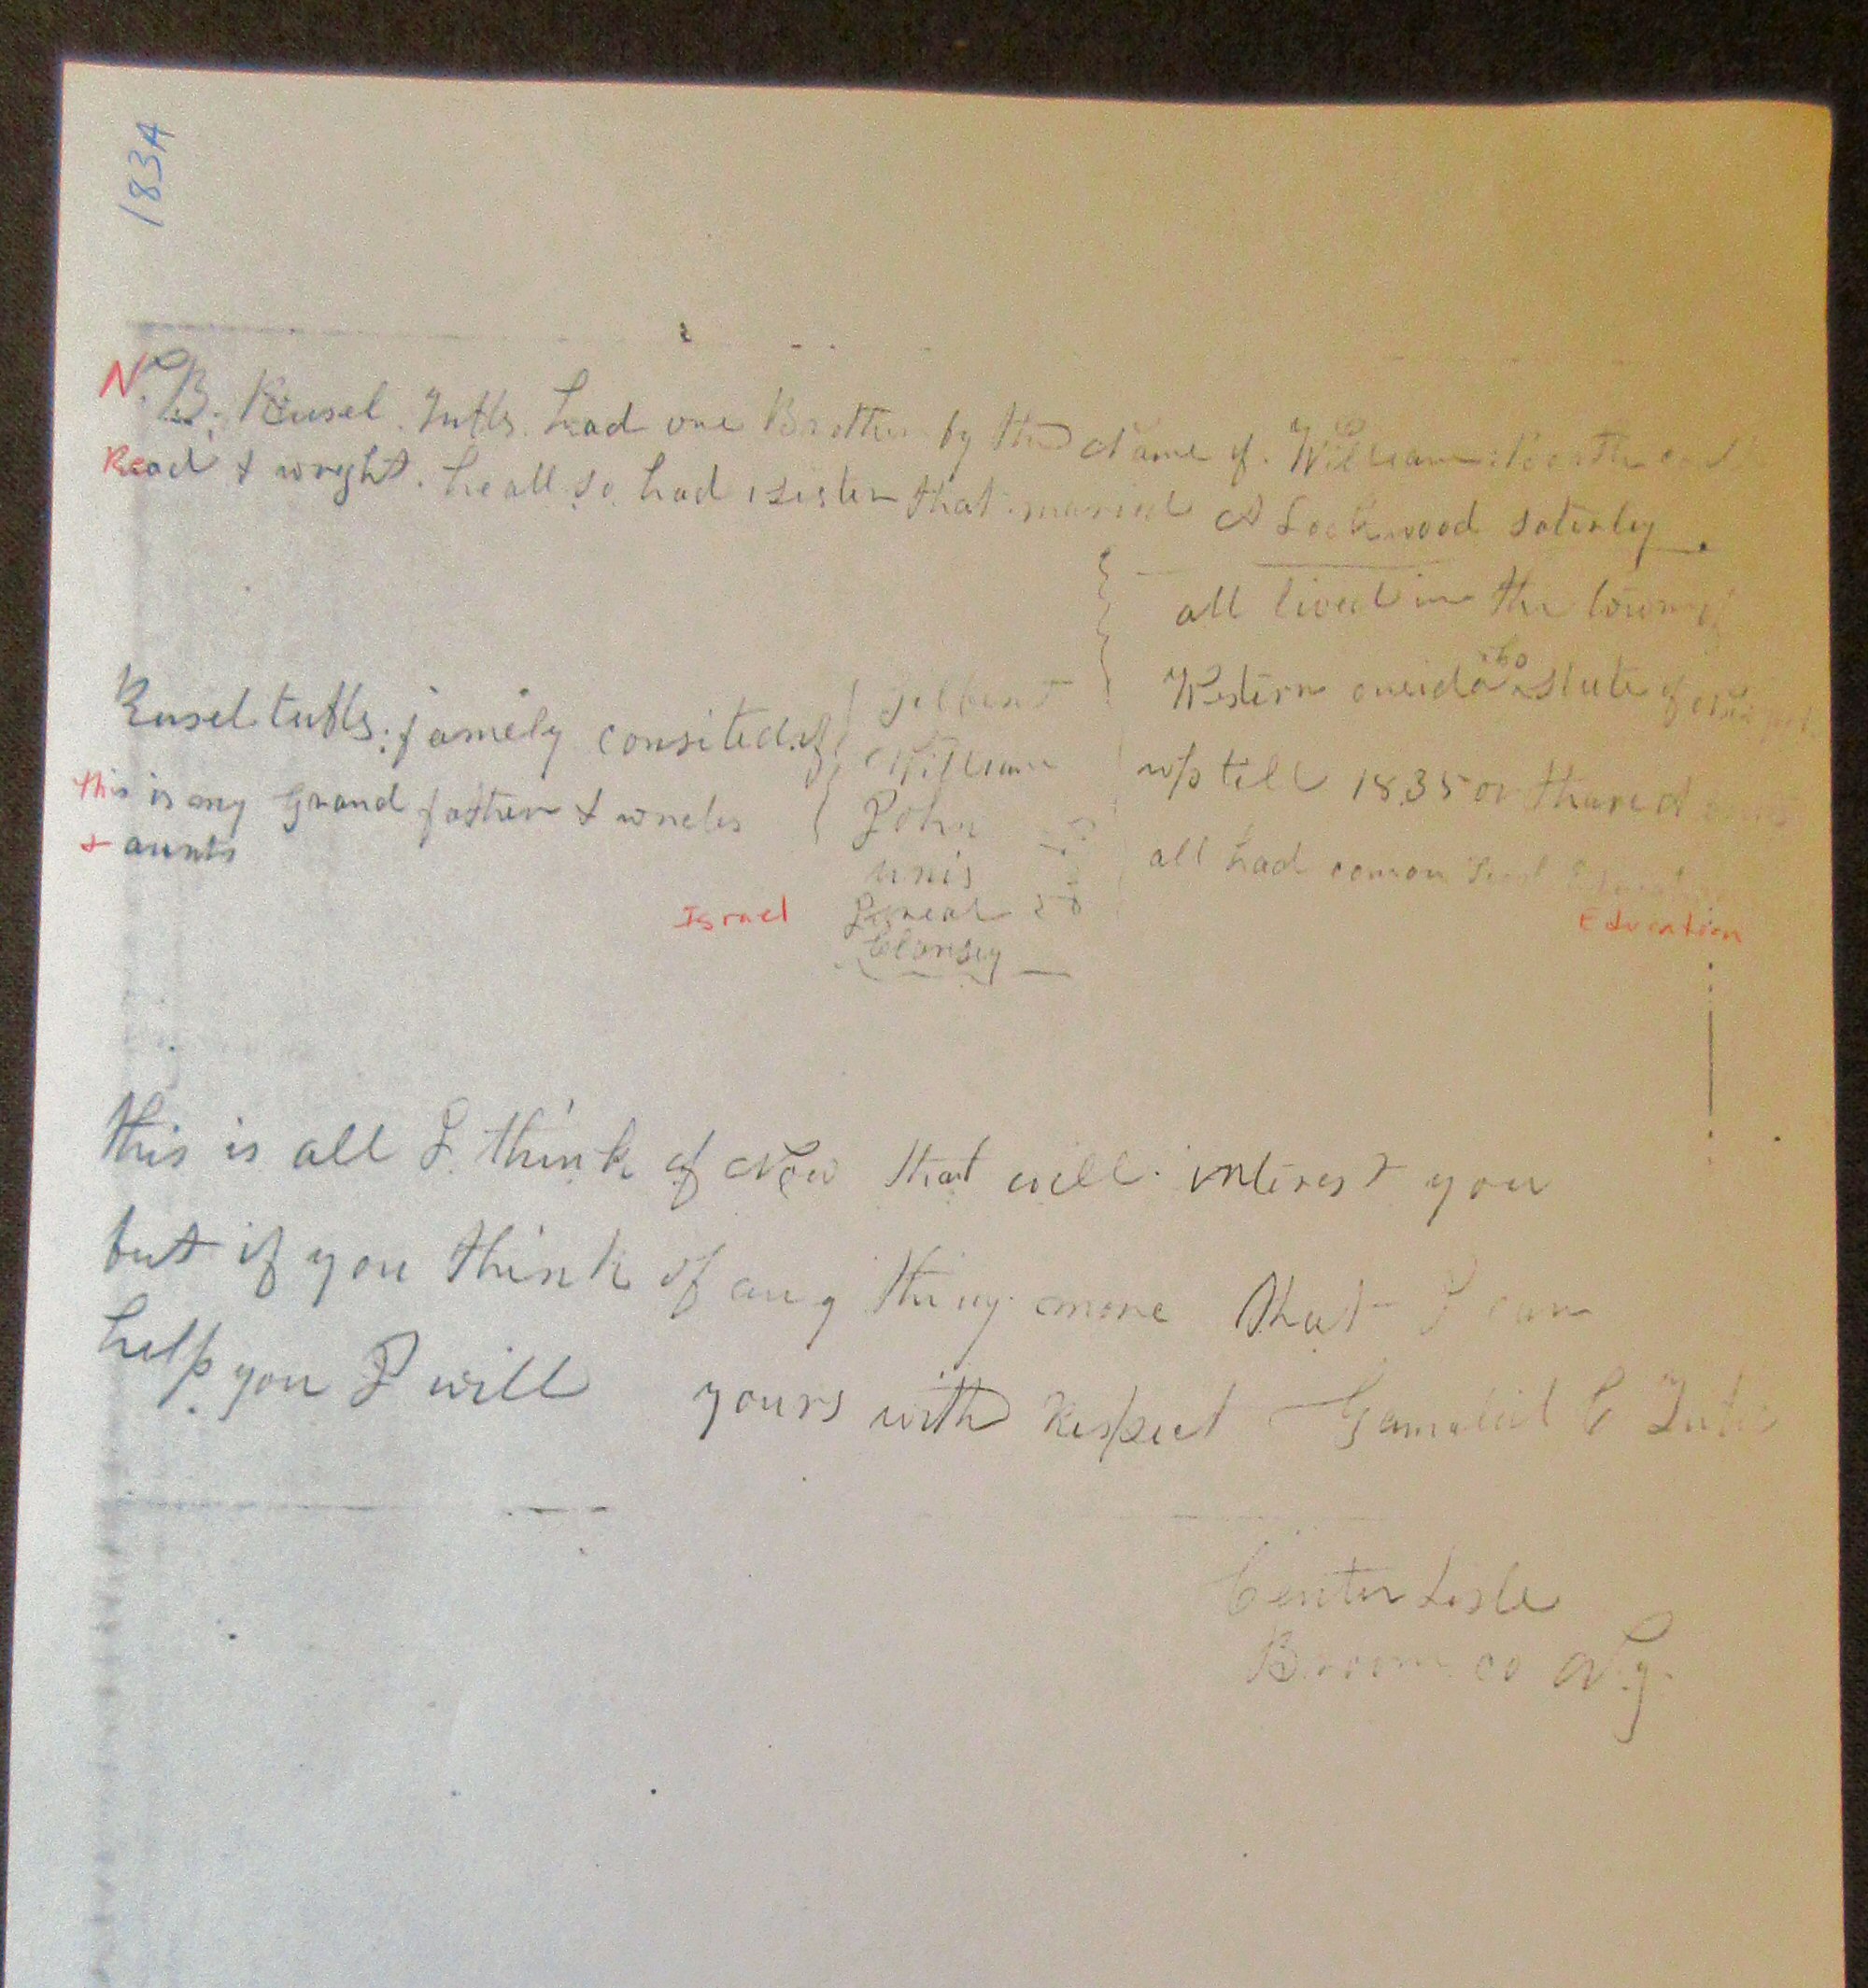 183A
N.B. Rusel Tufts. had one Brother by the Name of. William. Boath could
Read & wright. he all so had 1 sister that maried A Lockwood saterley
all lived in the town of
Western oneida co State of New york
Rusel tufts. famely consited of
Gilbert
William
up till 1835 or thare A
this is my Grand father & uncles
John
& aunts
all had comon
unis
Israel
Education
Clansey
this is all I think of Now that will interest you
but if you think of any thing more that I can
help you I will yours with Respect Gamaliel C Tufts
Center Lisle
Broom co N.y.